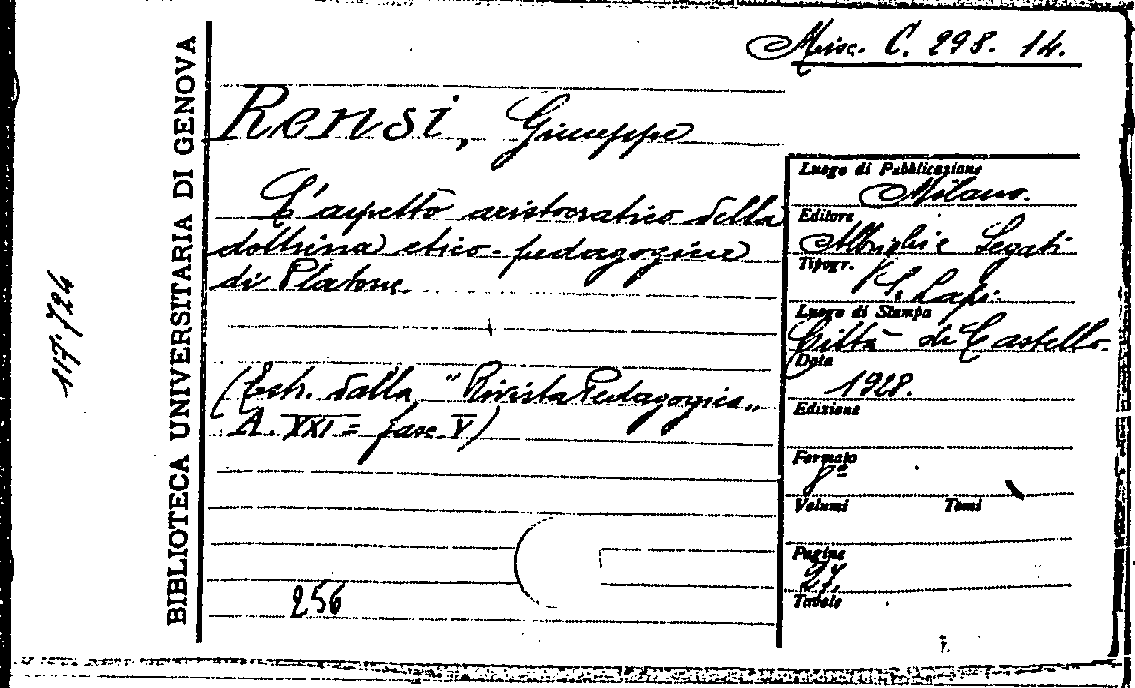 Misc. C. 298. 14.
BIBLIOTECA UNIVERSITARIA DI GENOVA
117.724
Rensi, Giuseppe
L'aspetto aristocratico della
dottrina etico-pedagogica
di Platone.
(Estr. dalla "Rivista Pedagogica"
A. XXI = fasc. V)
256
Luogo di Pubblicazione
Milano.
Editore
Albrighi e Segati
Tipogr.
S. Lapi.
Luogo di Stampa
Città di Castello.
Data
1928.
Edizione
Formato
8º
Volumi Tomi
Pagine
27.
Tavole